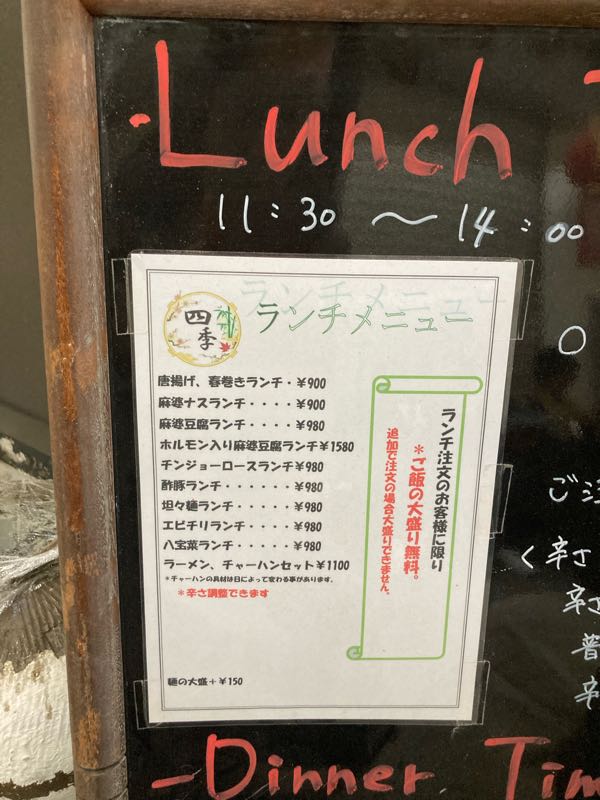 -Lunch
11:30 ～ 14:00
四季
ランチメニュー
唐揚げ、春巻きランチ・￥900
麻婆ナスランチ・・・・￥900
麻婆豆腐ランチ・・・・￥980
ホルモン入り麻婆豆腐ランチ￥1580
チンジョーロースランチ￥980
酢豚ランチ・・・・・・￥980
坦々麺ランチ・・・・・￥980
エビチリランチ・・・・￥980
八宝菜ランチ・・・・・￥980
ラーメン、チャーハンセット￥1100
*チャーハンの具材は日によって変わる事があります。
*辛さ調整できます
麺の大盛＋￥150
ランチ注文のお客様に限り
*ご飯の大盛り無料。
追加で注文の場合大盛りできません。
ご注
く辛さ
辛さ
普
辛
-Dinner Tim